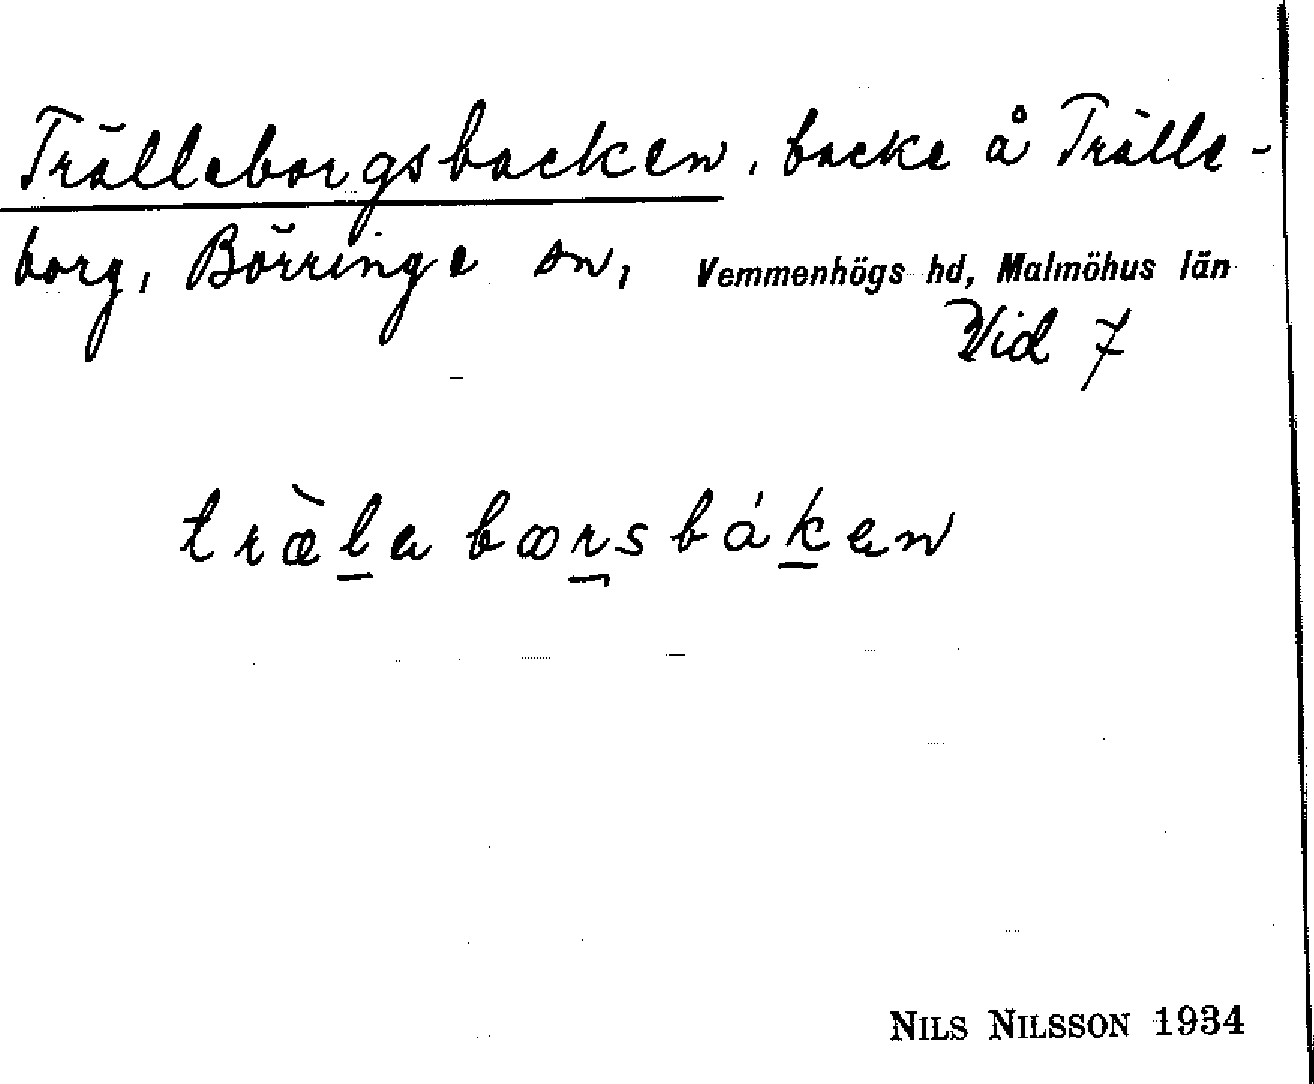 Trälleborgsbacken, backe å Trälle-
borg, Börringe sn, Vemmenhögs hd, Malmöhus län
Vid 7
træ̀l̲a bœr̲sbák̲an
NILS NILSSON 1934